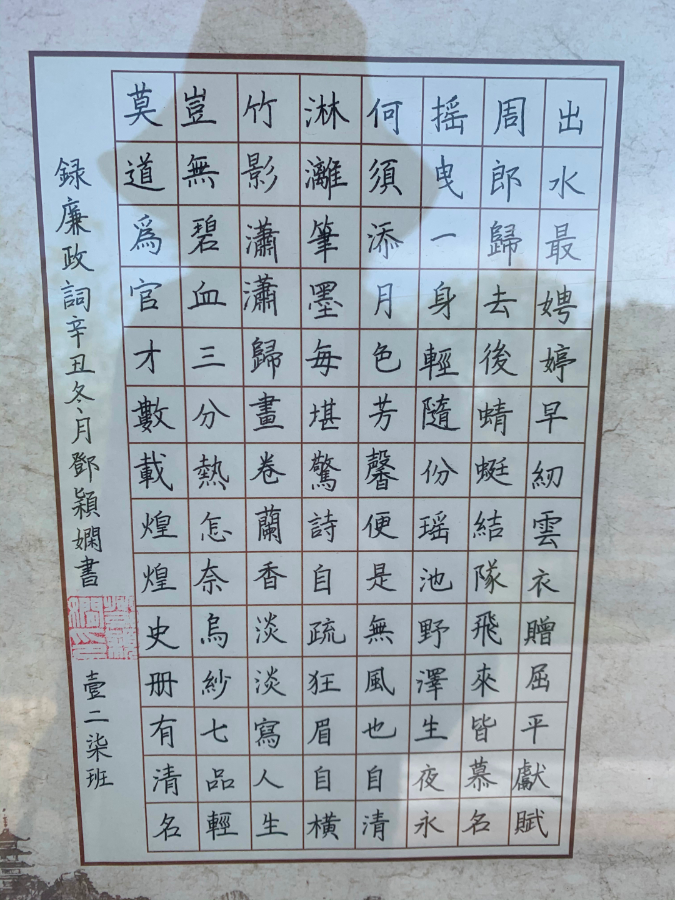 出水最娉婷早紉雲衣贈屈平獻賦
周郎歸去後蜻蜓結隊飛來皆慕名
摇曳一身輕隨份瑶池野澤生夜永
何須添月色芳馨便是無風也自清
淋灕筆墨每堪驚詩自疏狂眉自橫
竹影瀟瀟歸畫卷蘭香淡淡寫人生
豈無碧血三分熱怎奈烏紗七品輕
莫道爲官才數載煌煌史册有清名
録廉政詞辛丑冬月鄧穎嫻書
壹二柒班